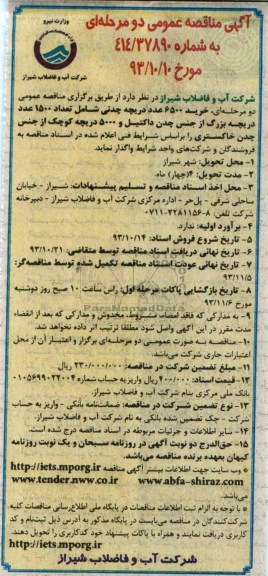 آگهی مناقصه عمومی دو مرحله‌ای
به شماره ۴۱۴/۳۷۸۹۰
مورخ ۹۳/۱۰/۱۰
وزارت نیرو
شرکت آب و فاضلاب شیراز
شرکت آب و فاضلاب شیراز در نظر دارد از طریق برگزاری مناقصه عمومی
دو مرحله‌ای، خرید ۶۵۰۰ عدد دریچه چدنی شامل تعداد ۱۵۰۰ عدد
دریچه بزرگ از جنس چدن داکتیل و ۵۰۰۰ دریچه کوچک از جنس
چدن خاکستری را براساس شرایط فنی اعلام شده در اسناد مناقصه به
فروشندگان و شرکت‌های واجد شرایط واگذار نماید.
۱- محل تحویل: شهر شیراز
۲- مدت تحویل: ۴(چهار) ماه.
۳- محل اخذ اسناد مناقصه و تسلیم پیشنهادات: شیراز - خیابان
ساحلی شرقی - پل‌حر - اداره مرکزی شرکت آب و فاضلاب شیراز - دبیرخانه
شرکت تلفن: ۸-۲۲۸۱۱۵۶-۰۷۱۱
۴- برآورد اولیه: ندارد.
۵- تاریخ شروع فروش اسناد: ۹۳/۱۰/۱۴
۶- تاریخ نهائی دریافت اسناد مناقصه توسط متقاضی: ۹۳/۱۰/۲۱
۷- تاریخ نهائی عودت اسناد مناقصه تکمیل شده توسط مناقصه‌گر:
۹۳/۱۱/۵
۸- تاریخ بازگشایی پاکات مرحله اول: راس ساعت ۱۰ صبح روز دوشنبه
مورخ ۹۳/۱۱/۶
۹- به مدارکی که فاقد امضاء، مشروط، مخدوش و مدارکی که بعد از انقضاء
مدت مقرر در این آگهی واصل شود مطلقا ترتیب اثر داده نخواهد شد.
۱۰- مناقصه به صورت عمومی دو مرحله‌ای برگزار و اعتبار آن از محل
اعتبارات جاری شرکت می‌باشد.
۱۱- مبلغ تضمین شرکت در مناقصه: ۲۳۰/۰۰۰/۰۰۰ ریال
۱۲- قیمت اسناد: ۴۰۰/۰۰۰ ریال واریز به حساب شماره ۰۱۰۵۶۹۹۰۲۳۰۰۴
بانک ملی مرکزی بنام شرکت آب و فاضلاب شیراز.
۱۳- نوع تضمین شرکت در مناقصه: ضمانت‌نامه بانکی - واریز به حساب
شرکت - چک تضمین شده بانکی به نام شرکت آب و فاضلاب شیراز.
۱۴- سایر اطلاعات و جزئیات مربوطه در اسناد مناقصه درج شده است.
۱۵- حق‌الدرج دو نوبت آگهی در روزنامه سبحان و یک نوبت روزنامه
کیهان بعهده برنده مناقصه می‌باشد.
* وب سایت جهت اطلاعات بیشتر آگهی مناقصه http://iets.mporg.ir
www.tender.nww.co.ir و www.abfa-shiraz.com
می‌باشد.
* با توجه به الزام ثبت اطلاعات مناقصات در پایگاه ملی اطلاع‌رسانی مناقصات کلیه
شرکت‌کنندگان در مناقصه می‌بایست در پایگاه مذکور به آدرس ذیل ثبت‌نام و کد
کاربری دریافت نمایند و همراه با پاکات پیشنهاد خود کدکاربری را تحویل دهند.
http://iets.mporg.ir
شرکت آب و فاضلاب شیراز